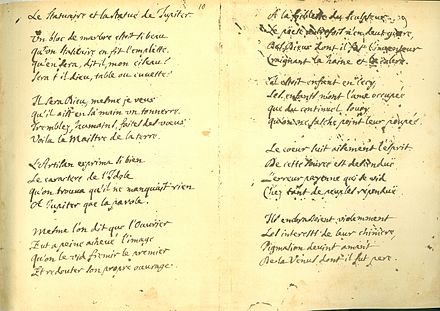 10
Le Statuaire et la Statue de Jupiter.
Un bloc de marbre estoit si beau
Qu'un Statuaire en fit l'emplette.
Qu'en fera, dit-il, mon ciseau?
Sera-t-il dieu, table ou cuvette?
Il sera Dieu, mesme je veux
qu'il ait en sa main un tonnerre.
Tremblez, humains, faites des voeux
Voila le Maistre de la terre.
L'Artisan exprima si bien
Le caractere de l'Idole
qu'on trouva qu'il ne manquoit rien
A Jupiter que la parole.
Mesme l'on dit que l'Ouvrier
Eut a peine achevé l'image
qu'on le vid fremir le premier
Et redouter son propre ouvrage.
A la foiblesse du Sculpteur
Le poete n'en dut guere,
Des Dieux dont il fut l'inventeur
Craignant la haine et la colere.
Il estoit enfant en cecy,
Les enfants n'ont l'ame occupée
que du continuel soucy
qu'on ne fasche point leur poupée.
Le coeur suit aisément l'esprit
De cette source est descendue
L'erreur payenne qui se vid
Chez tant de peuples repandue
Ils embrassoient violemment
Les interests de leur chimere
Pigmalion devint amant
De la Venus dont il fut pere.